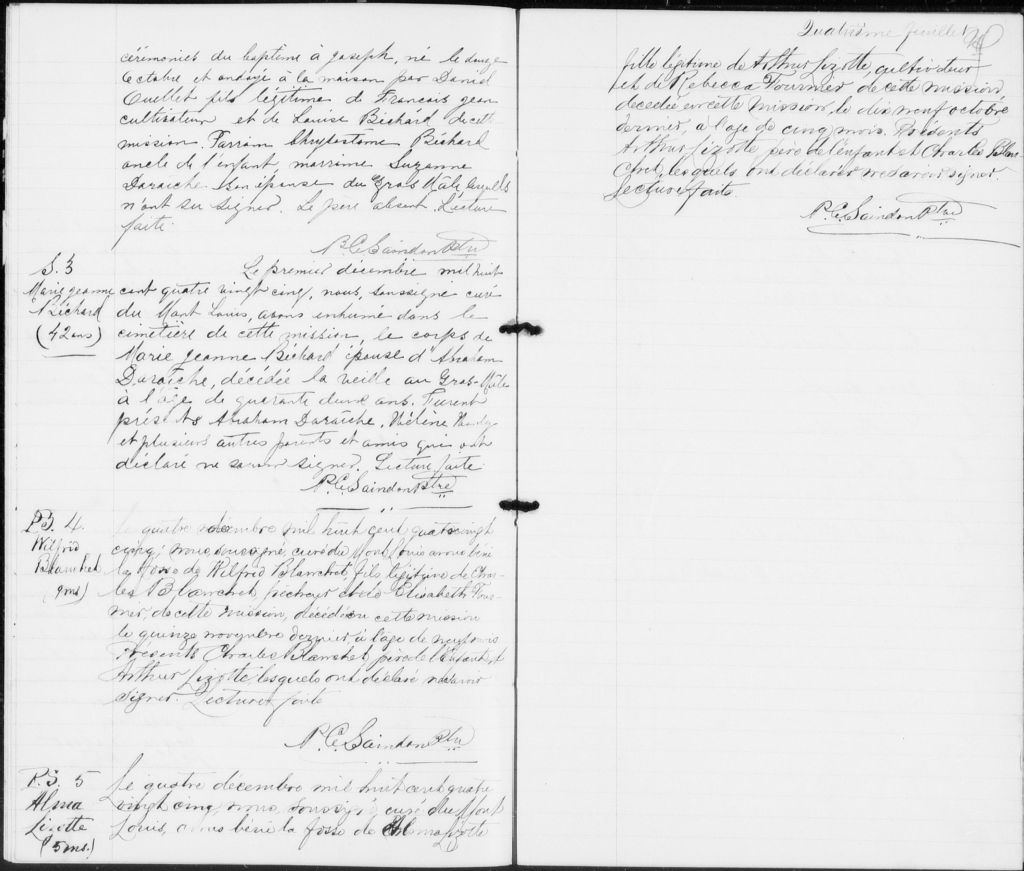 cérémonies du baptême à Joseph, né le douze
octobre et ondoyé à la maison par Daniel
Ouellet fils légitime de Francois jean
cultivateur et de Louise Bichard de cette
mission. Parrain Chrysostome Bichard
oncle de l'enfant, marraine Suzanne
Daraiche son épouse du Gros Mâle lesquels
n'ont su signer. Le père absent. Lecture
faite.
P. C. Saindon Ptre
S. 3
Marie jeanne
Bichard
(42 ans)
Le premier décembre mil huit
cent quatre vingt cinq, nous, soussigné curé
du Mont Louis, avons inhumé dans le
cimetière de cette mission, le corps de
Marie Jeanne Bichard épouse d'Abraham
Daraiche, décédée la veille au Gros-Mâle
à l'âge de quarante deux ans. Furent
présents Abraham Daraiche, Hélène
et plusieurs autres parents et amis qui ont
déclaré ne savoir signer. Lecture faite
P. C. Saindon Ptre
P.S. 4.
Wilfrid
Blanchet
(9 ms)
Le quatre décembre mil huit cent quatre vingt
cinq, nous soussigné, curé du Mont Louis avons béni
la fosse de Wilfrid Blanchet, fils légitime de Char-
les Blanchet, pêcheur et de Elisabeth Four-
nier, de cette mission, décédé en cette mission
le quinze novembre dernier à l'age de neuf mois
Présents Charles Blanchet, père de l'enfant et
Arthur Lizotte lesquels ont déclaré ne savoir
signer. Lecture faite
P. C. Saindon Ptre
P.S. 5
Alma
Lizotte
(5 ms.)
Le quatre décembre mil huit cent quatre
vingt cinq, nous, soussigné, curé du Mont
Louis, avons béni la fosse de Alma Lizotte
Quatrième feuillet
fille légitime de Arthur Lizotte, cultivateur
et de Rebecca Fournier de cette mission
décédée en cette mission, le dix neuf octobre
dernier, a l'age de cinq mois. Présents
Arthur Lizotte père de l'enfant et Charles Blan-
chet, lesquels ont déclarer ne savoir signer.
Lecture faite.
P. C. Saindon Ptre